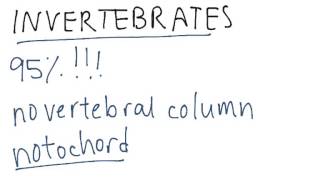 INVERTEBRATES
95% !!!
no vertebral column
notochord